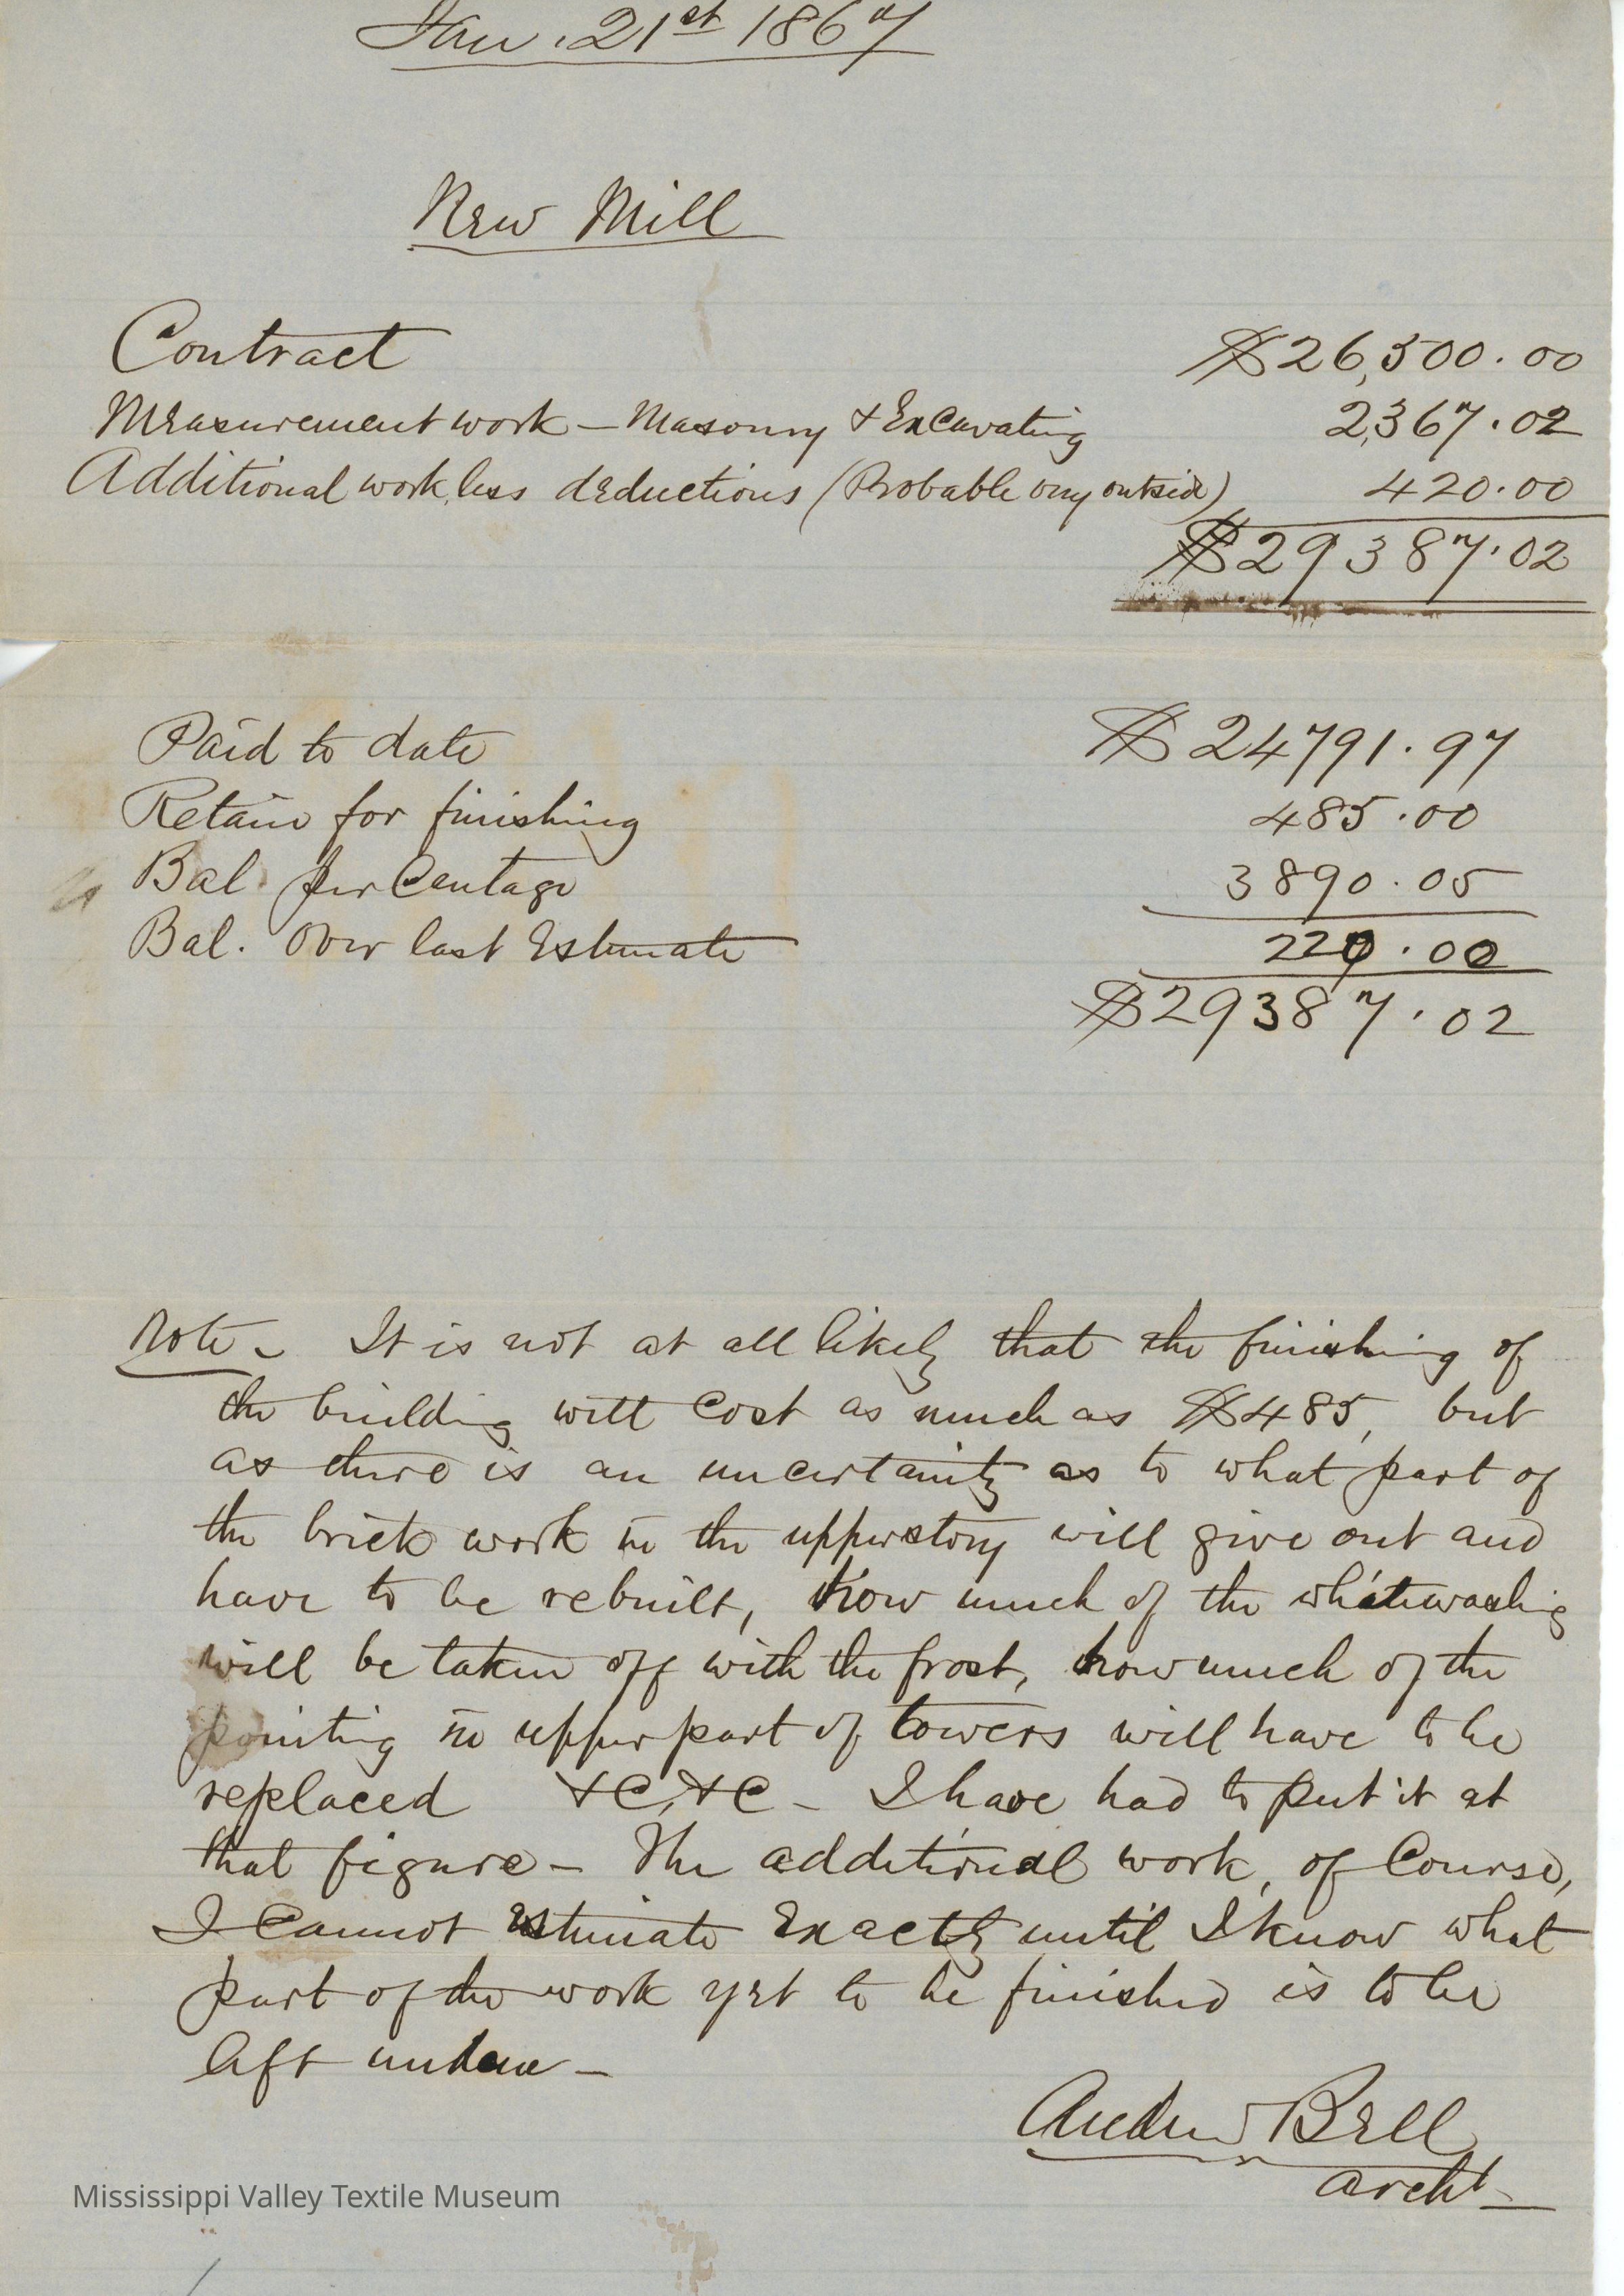 Jan. 21st 1867
New Mill
Contract $26,500.00
Measurement work – Masonry & Excavating 2,367.02
Additional work, less deductions (Probable any outside) 420.00
$29387.02
Paid to date $24791.97
Retain for finishing 485.00
Bal. per Centage 3890.05
Bal. Over last Estimate 220.00
$29387.02
Note – It is not at all likely that the finishing of
the building will cost as much as $485, but
as there is an uncertainty as to what part of
the brick work in the upper story will give out and
have to be rebuilt, how much of the whitewashing
will be taken off with the frost, how much of the
pointing in upper part of towers will have to be
replaced &C, &C – I have had to put it at
that figure – The additional work, of Course,
I Cannot Estimate Exactly until I know what
part of the work yet to be finished is to be
left undone –
Andrew Bell
Archt –
Mississippi Valley Textile Museum